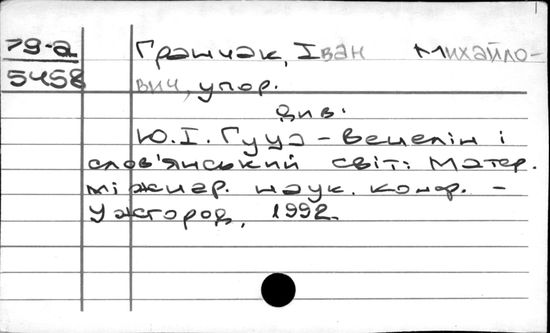 79-а Гранчак, Іван Михайло-
5458 вич, упор.
див.
Ю.І. Гуца - Венелін і
слов'янський світ: Матер.
міжнар. наук. конф. -
Ужгород, 1992.